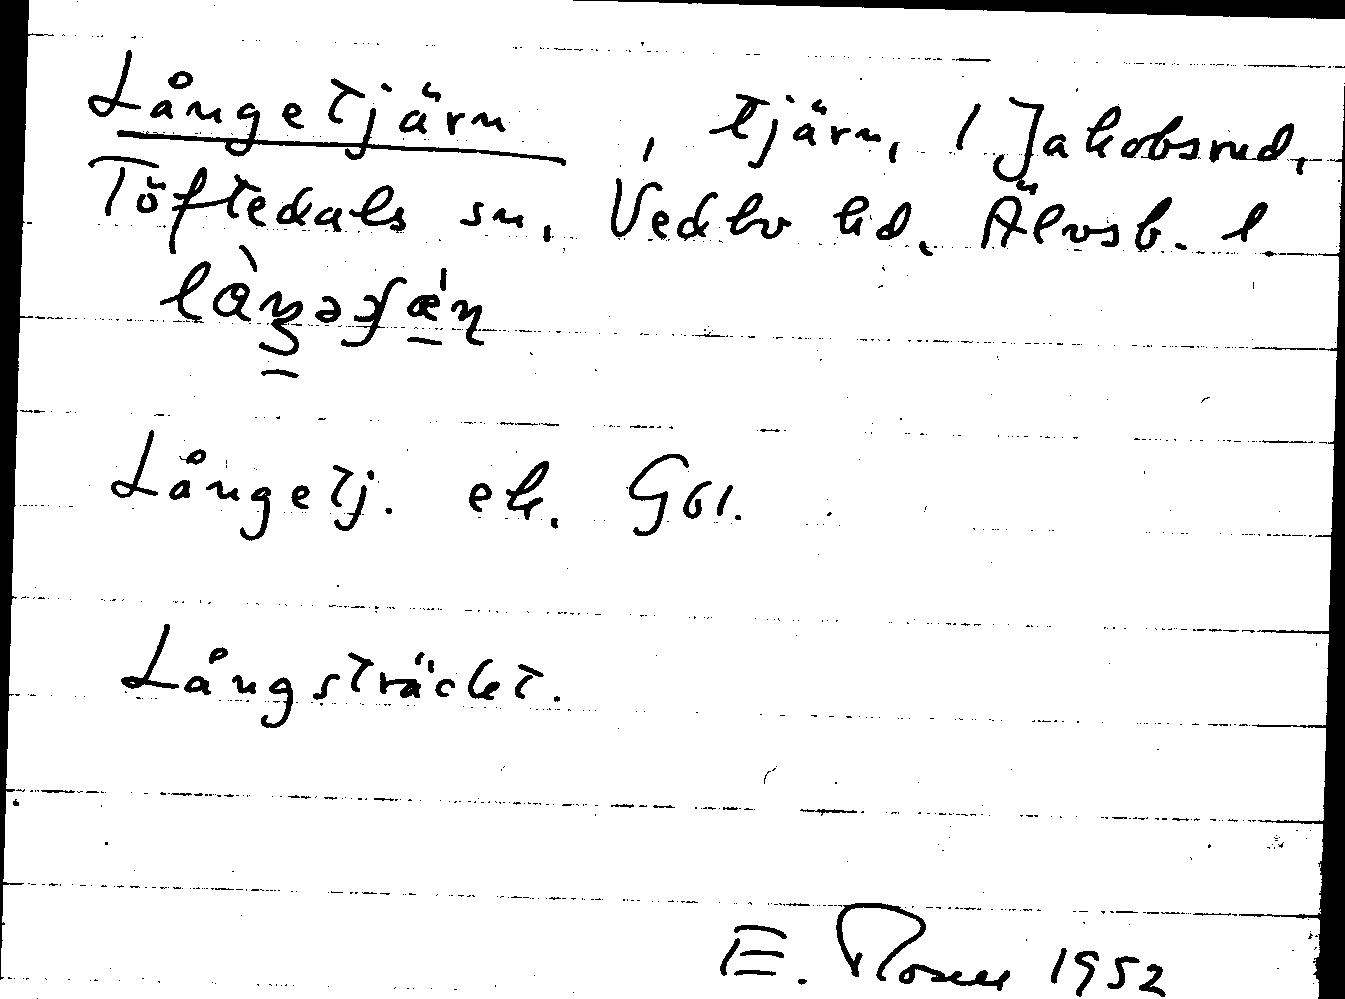 Långetjärn, tjärn, 1 Jakobsrud,
Töftedals sn, Vedbo hd. Älvsb. l.
Långetj. ek. G61.
Långsträckt.
E. Rosell 1952